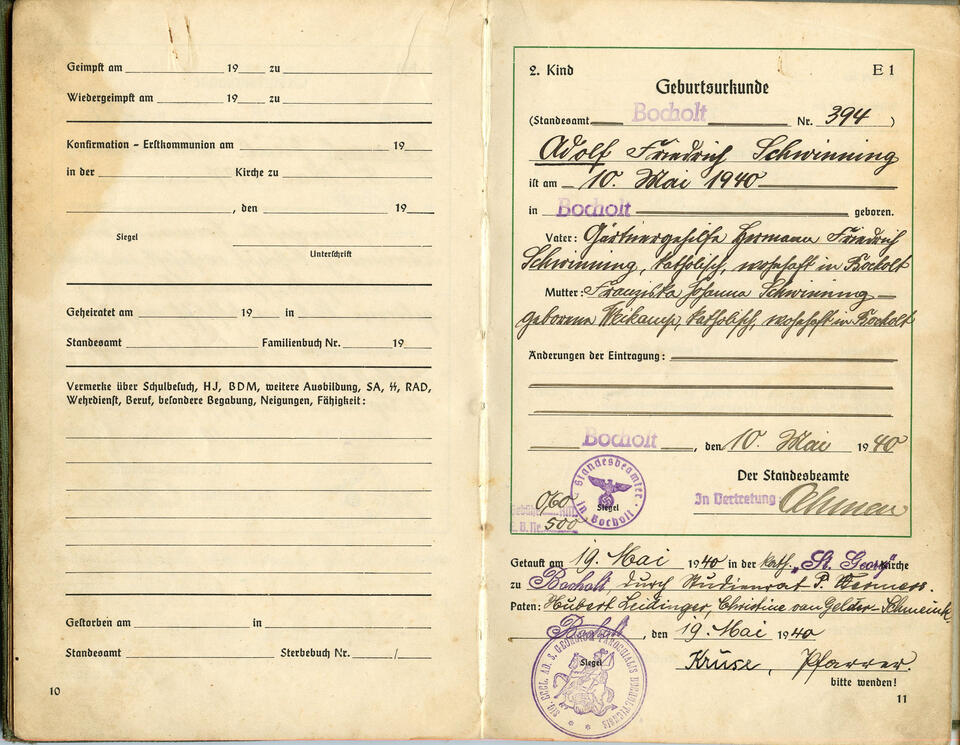 Geimpft am 19 zu
Wiedergeimpft am 19 zu
Konfirmation - Erstkommunion am 19
in der Kirche zu
, den 19
Siegel
Unterschrift
Geheiratet am 19 in
Standesamt Familienbuch Nr. 19
Vermerke über Schulbesuch, HJ, BDM, weitere Ausbildung, SA, ᛋᛋ, RAD,
Wehrdienst, Beruf, besondere Begabung, Neigungen, Fähigkeit:
Gestorben am in
Standesamt Sterbebuch Nr. /
10
2. Kind E 1
Geburtsurkunde
(Standesamt Bocholt Nr. 394)
Adolf Friedrich Schwinning
ist am 10. Mai 1940
in Bocholt geboren.
Vater: Gärtnergehilfe Hermann Friedrich
Schwinning, katholisch, wohnhaft in Bocholt
Mutter: Franziska Johanna Schwinning
geborene katholisch, wohnhaft in Bocholt
Änderungen der Eintragung:
Bocholt, den 10. Mai 1940
Der Standesbeamte
In Vertretung:
Standesbeamter in Bocholt
Siegel
0,60
500
Getauft am 19. Mai 1940 in der kath. "St. Georg" Kirche
zu Bocholt, durch Studienrat P.
Paten: Hubert Leidinger, Christine van Gelder-Schmeink
Bocholt, den 19. Mai 1940
Siegel
Kruse, Pfarrer
bitte wenden!
11